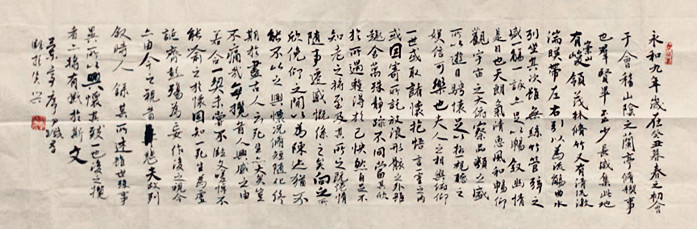 永和九年歲在癸丑暮春之初會
于會稽山陰之蘭亭脩稧事
也羣賢畢至少長咸集此地
有崇山峻領茂林脩竹又有清流激
湍暎帶左右引以為流觴曲水
列坐其次雖無絲竹管弦之
盛一觴一詠亦足以暢叙幽情
是日也天朗氣清惠風和暢仰
觀宇宙之大俯察品類之盛
所以遊目騁懷足以極視聽之
娛信可樂也夫人之相與俯仰
一世或取諸懷抱悟言一室之內
或因寄所託放浪形骸之外雖
趣舍萬殊靜躁不同當其欣
於所遇蹔得於己快然自足不
知老之將至及其所之既惓情
隨事遷感慨係之矣向之所
欣俛仰之間以為陳迹猶不
能不以之興懷況脩短隨化終
期於盡古人云死生亦大矣豈
不痛哉每攬昔人興感之由
若合一契未嘗不臨文嗟悼不
能喻之於懷固知一死生為虛
誕齊彭殤為妄作後之視今
亦由今之視昔悲夫故列
叙時人錄其所述雖世殊事
異所以興懷其致一也後之攬
者亦將有感於斯文
蘭亭序